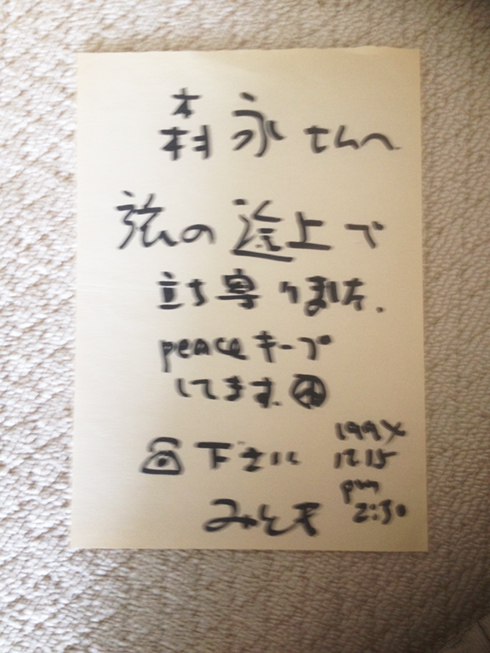 森永さんへ
旅の途上で
立ち寄りました.
peaceキープ
してます.
☎下さい
みとも
199X
12.15
pm
2:30